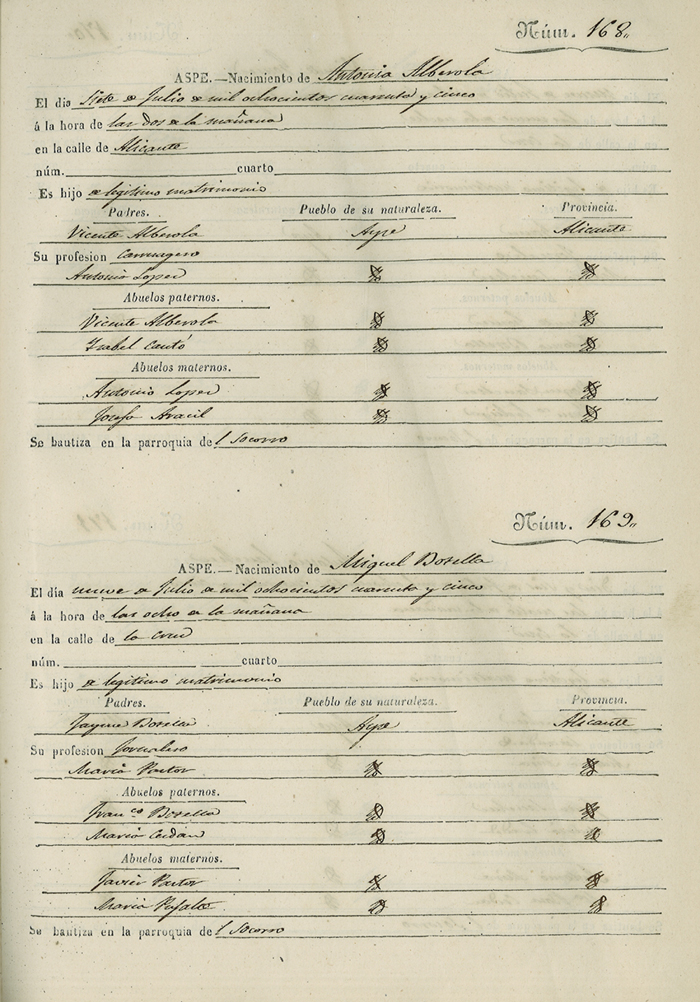 Núm. 168.
ASPE.—Nacimiento de Antonia Alberola
El día siete de Julio de mil ochocientos cuarenta y cinco
á la hora de las dos de la mañana
en la calle de Alicante
núm. cuarto
Es hijo de legitimo matrimonio
Padres. Pueblo de su naturaleza. Provincia.
Vicente Alberola Aspe Alicante
Su profesion
Antonia Lopez
Abuelos paternos.
Vicente Alberola
Isabel Cantó
Abuelos maternos.
Antonio Lopez
Josefa Aracil
Se bautiza en la parroquia del Socorro
Núm. 169.
ASPE.—Nacimiento de Miguel Botella
El día nueve de Julio de mil ochocientos cuarenta y cinco
á la hora de las ocho de la mañana
en la calle de la Cruz
núm. cuarto
Es hijo de legitimo matrimonio
Padres. Pueblo de su naturaleza. Provincia.
Jayme Botella Aspe Alicante
Su profesion Jornalero
Maria Pastor
Abuelos paternos.
Franco Botella
Maria Cerdán
Abuelos maternos.
Javier Pastor
Maria
Se bautiza en la parroquia del Socorro